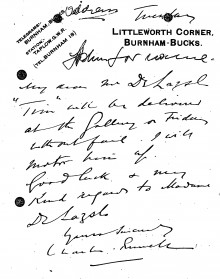 Address Tuesday
TELEGRAMS:
BURNHAM, BUCKS.
STATION:
TAPLOW, G.W.R.
(TEL. BURNHAM 19)
LITTLEWORTH CORNER,
BURNHAM-BUCKS.
My dear Mr De Laszlo
"Tim" will be delivered
at the Gallery on Friday
without fail. I will
motor him up.
Good luck & my
kind regards to Madame
De Laszlo
Yours sincerely
Charles Russell